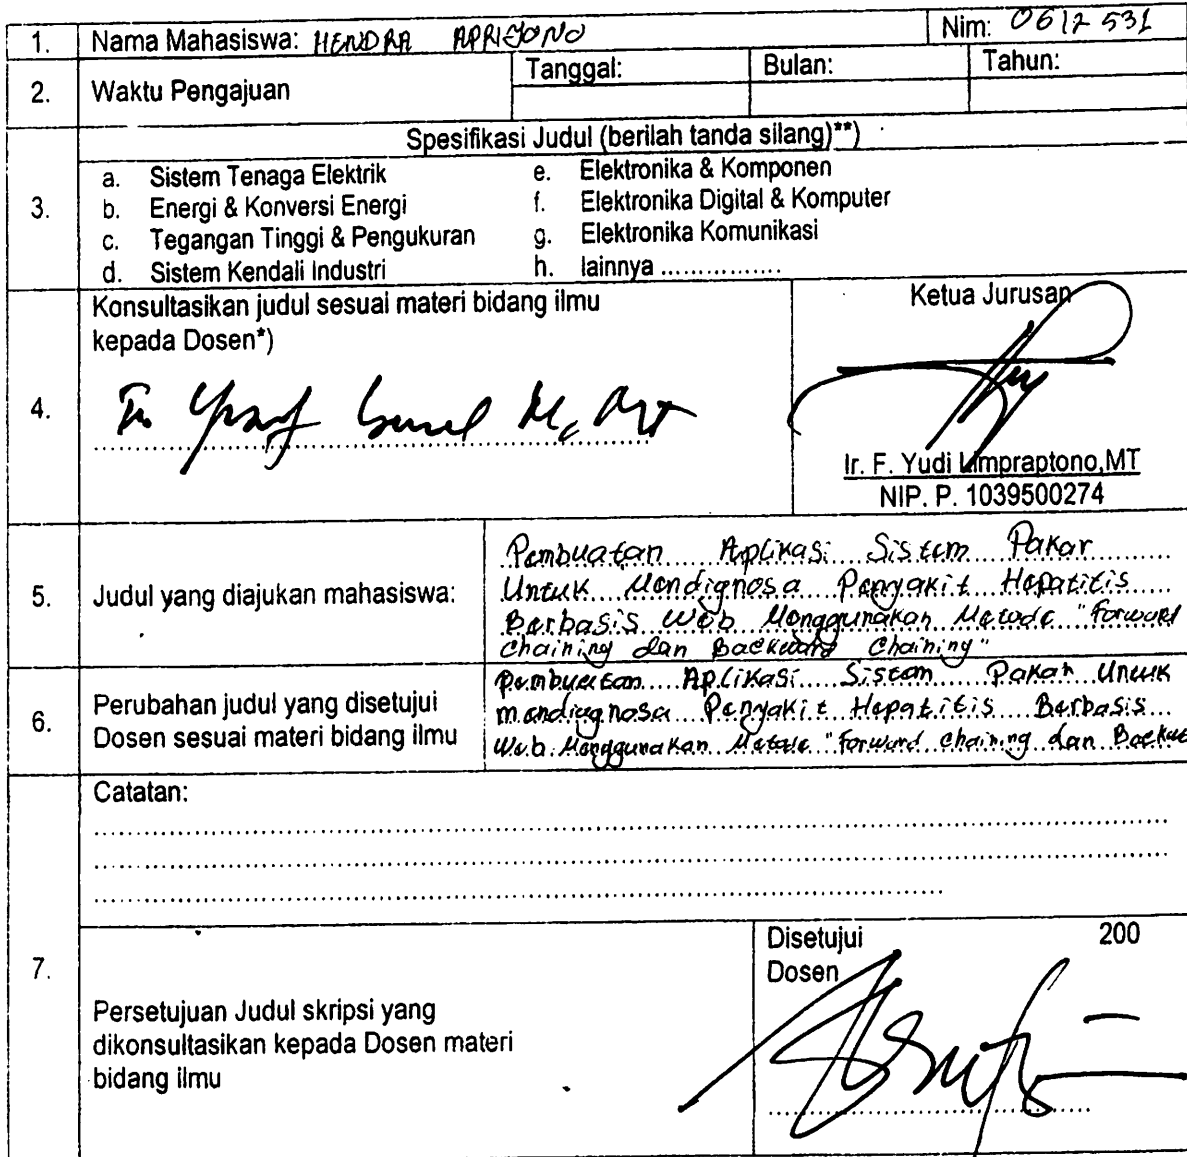 1. Nama Mahasiswa: HENDRA APRIJONO Nim: 0612 531
2. Waktu Pengajuan Tanggal: Bulan: Tahun:
Spesifikasi Judul (berilah tanda silang)**)
3.
a. Sistem Tenaga Elektrik e. Elektronika & Komponen
b. Energi & Konversi Energi f. Elektronika Digital & Komputer
c. Tegangan Tinggi & Pengukuran g. Elektronika Komunikasi
d. Sistem Kendali Industri h. lainnya ................
4.
Konsultasikan judul sesuai materi bidang ilmu
kepada Dosen*)
Ketua Jurusan
Ir. F. Yudi Limpraptono,MT
NIP. P. 1039500274
5. Judul yang diajukan mahasiswa:
Pembuatan Aplikasi Sistem Pakar
Untuk Mendignosa Penyakit Hepatitis
Berbasis Web Menggunakan Metode "Forward
Chaining dan Backward Chaining"
6. Perubahan judul yang disetujui
Dosen sesuai materi bidang ilmu
Pembuatan Aplikasi Sistem Pakar Untuk
mendiagnosa Penyakit Hepatitis Berbasis
Web Menggunakan Metode "Forward Chaining dan
7.
Catatan:
Disetujui 200
Dosen
Persetujuan Judul skripsi yang
dikonsultasikan kepada Dosen materi
bidang ilmu